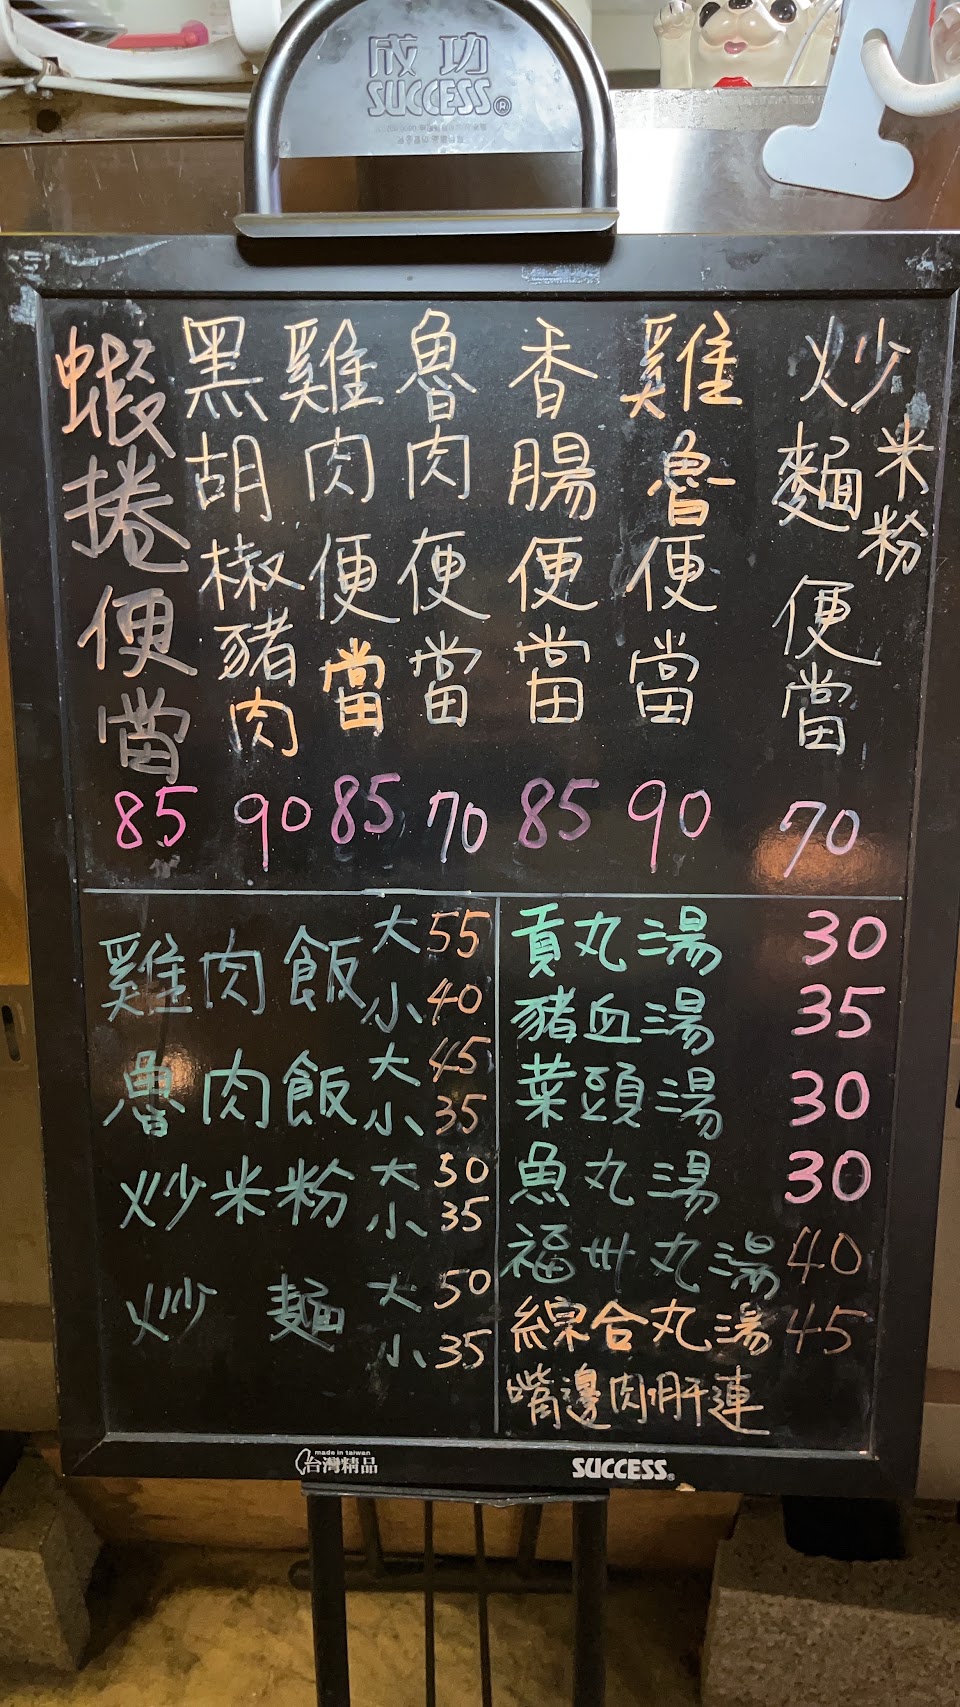 成功
SUCCESS®
炒麵 米粉 便當 70
雞魯便當 90
香腸便當 85
魯肉便當 70
雞肉便當 85
黑胡椒豬肉 90
蝦捲便當 85
雞肉飯 大 55
小 40
魯肉飯 大 45
小 35
炒米粉 大 50
小 35
炒麵 大 50
小 35
貢丸湯 30
豬血湯 35
菜頭湯 30
魚丸湯 30
福州丸湯 40
綜合丸湯 45
嘴邊肉 肝連
made in taiwan
台灣精品
SUCCESS®